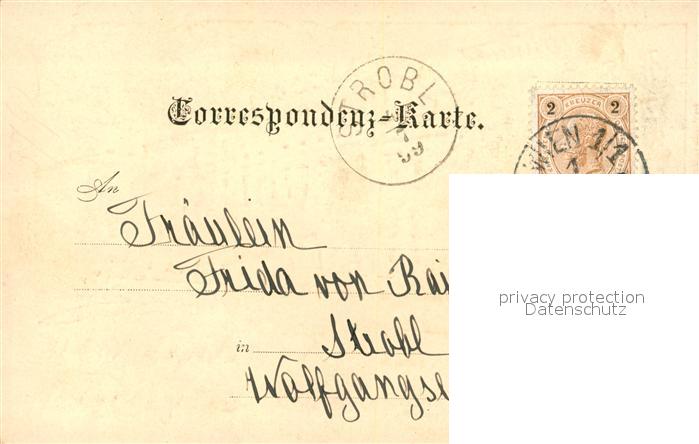 STROBL
7
99
2 KREUZER 2
WIEN 1/1
1
Correspondenz-Karte.
An
Fräulein
Frida von Rai
privacy protection
Datenschutz
in Strobl
Wolfgangse